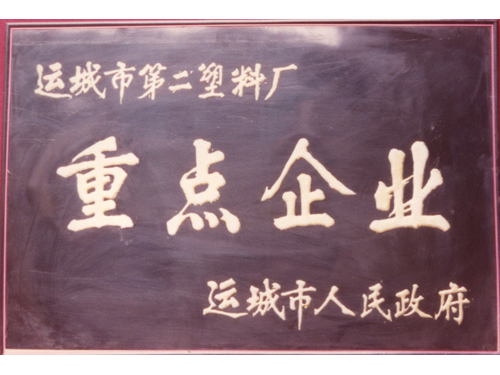 运城市第二塑料厂
重点企业
运城市人民政府